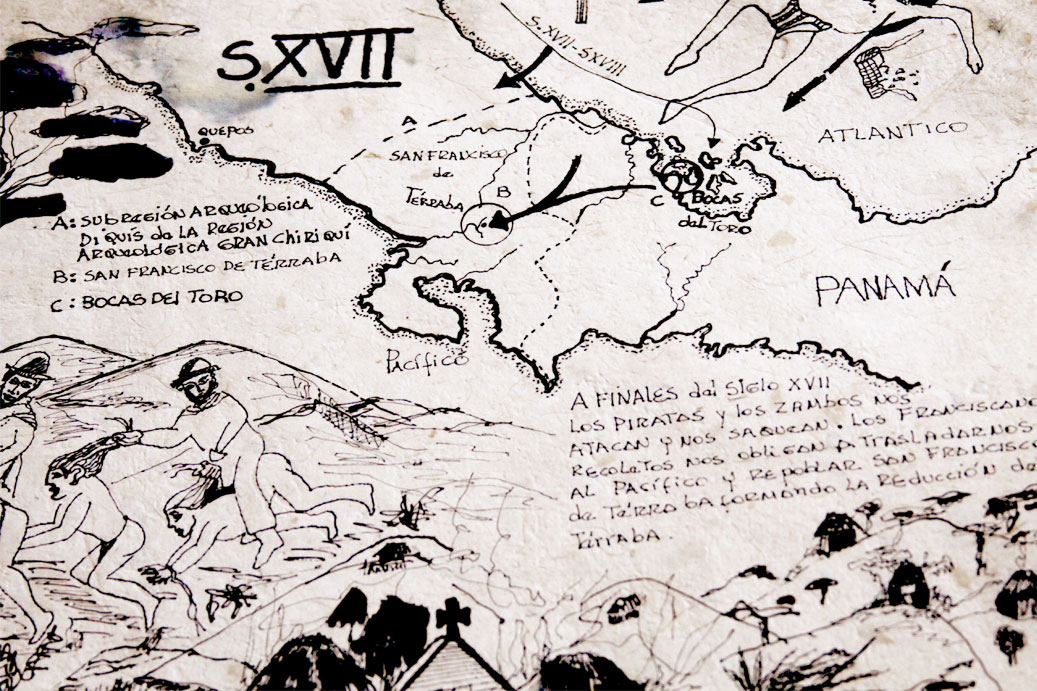 S.XVII
S.XVII-S.XVIII
QUEPOS
A
SAN FRANCISCO
de
TÉRRABA
B
C
BOCAS
del TORO
ATLANTICO
A: SUBREGIÓN ARQUEOLÓGICA
DIQUÍS de LA REGIÓN
ARQUEOLÓGICA GRAN CHIRIQUÍ
B: SAN FRANCISCO DE TÉRRABA
C: BOCAS DEL TORO
PANAMÁ
Pacífico
A FINALES del SIGLO XVII
LOS PIRATAS y los ZAMBOS NOS
ATACAN y NOS SAQUEAN. LOS FRANCISCANO
RECOLETOS NOS OBLIGAN A TRASLADARNOS
AL PACÍFICO Y REPOBLAR SAN FRANCISCO
de TÉRRABA FORMANDO LA REDUCCIÓN de
TÉRRABA.